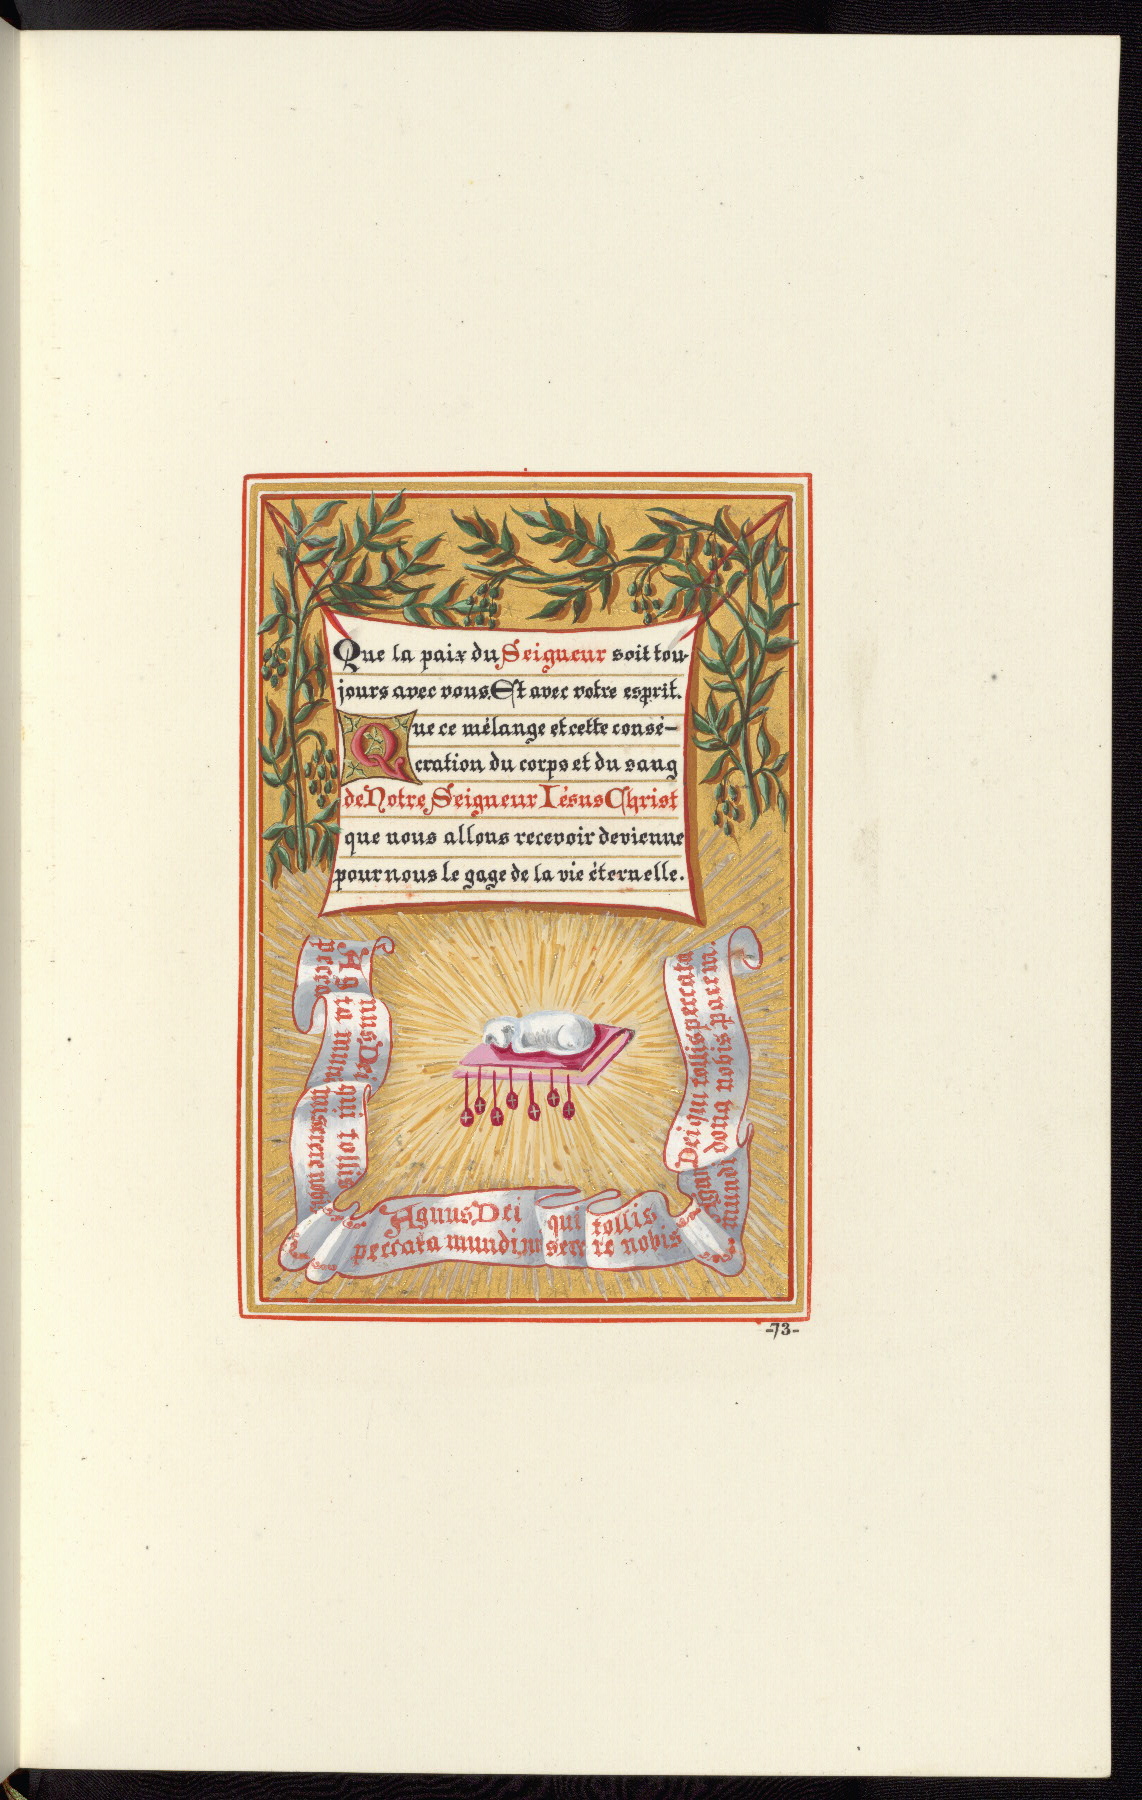 Que la paix du Seigneur soit tou-
jours avec vous. Et avec votre esprit.
Que ce mélange et cette consé-
cration du corps et du sang
de Notre Seigneur Iésus Christ
que nous allons recevoir devienne
pour nous le gage de la vie éternelle.
Agnus Dei qui tollis
pecca ta mundi miserere nobis
Agnus Dei qui tollis
peccata mundi, miserere nobis
Agnus Dei qui tollis peccata
mundi dona nobis pacem.
-73-